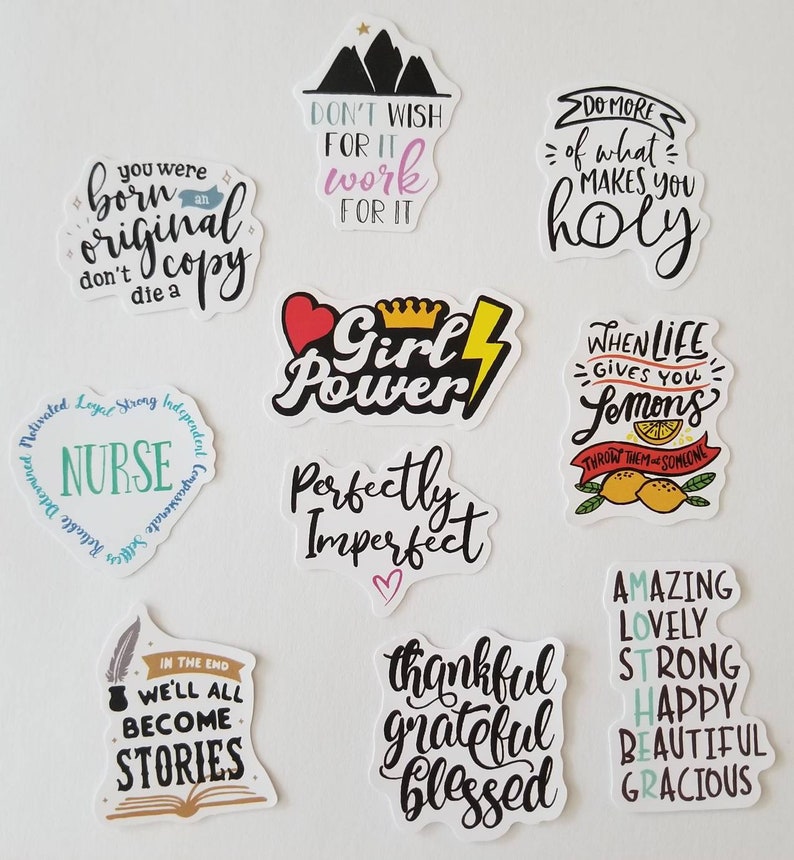 DON'T WISH
FOR IT
work
FOR IT
DO MORE
of what
MAKES YOU
holy
you were
born an
original
don't copy
die a
Girl
Power
WHEN LIFE
GIVES YOU
Lemons
THROW THEM at SOMEONE
NURSE
Reliable Determined Motivated Loyal Strong Independent Compassionate Selfless
Perfectly
Imperfect
IN THE END
WE'LL ALL
BECOME
STORIES
thankful
grateful
blessed
AMAZING
LOVELY
STRONG
HAPPY
BEAUTIFUL
GRACIOUS